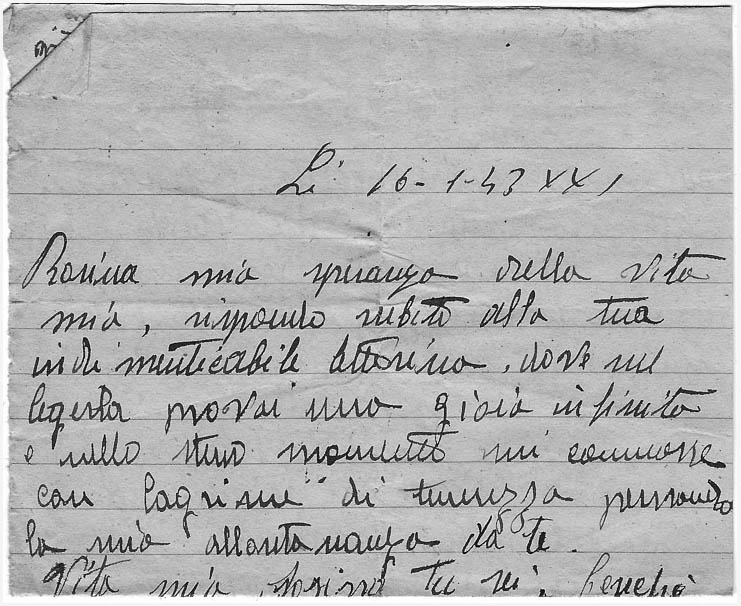 Li 16-1-43 XXI
Rosina mia speranza della vita
mia, rispondo subito alla tua
indimenticabile letterina, dove nel
legerla provai una gioia infinita
e nello steso momento mi commosse
con lagrime di tenerezza pensando
la mia allontananza da te.
Vita mia, Rosina tu sei, benchè